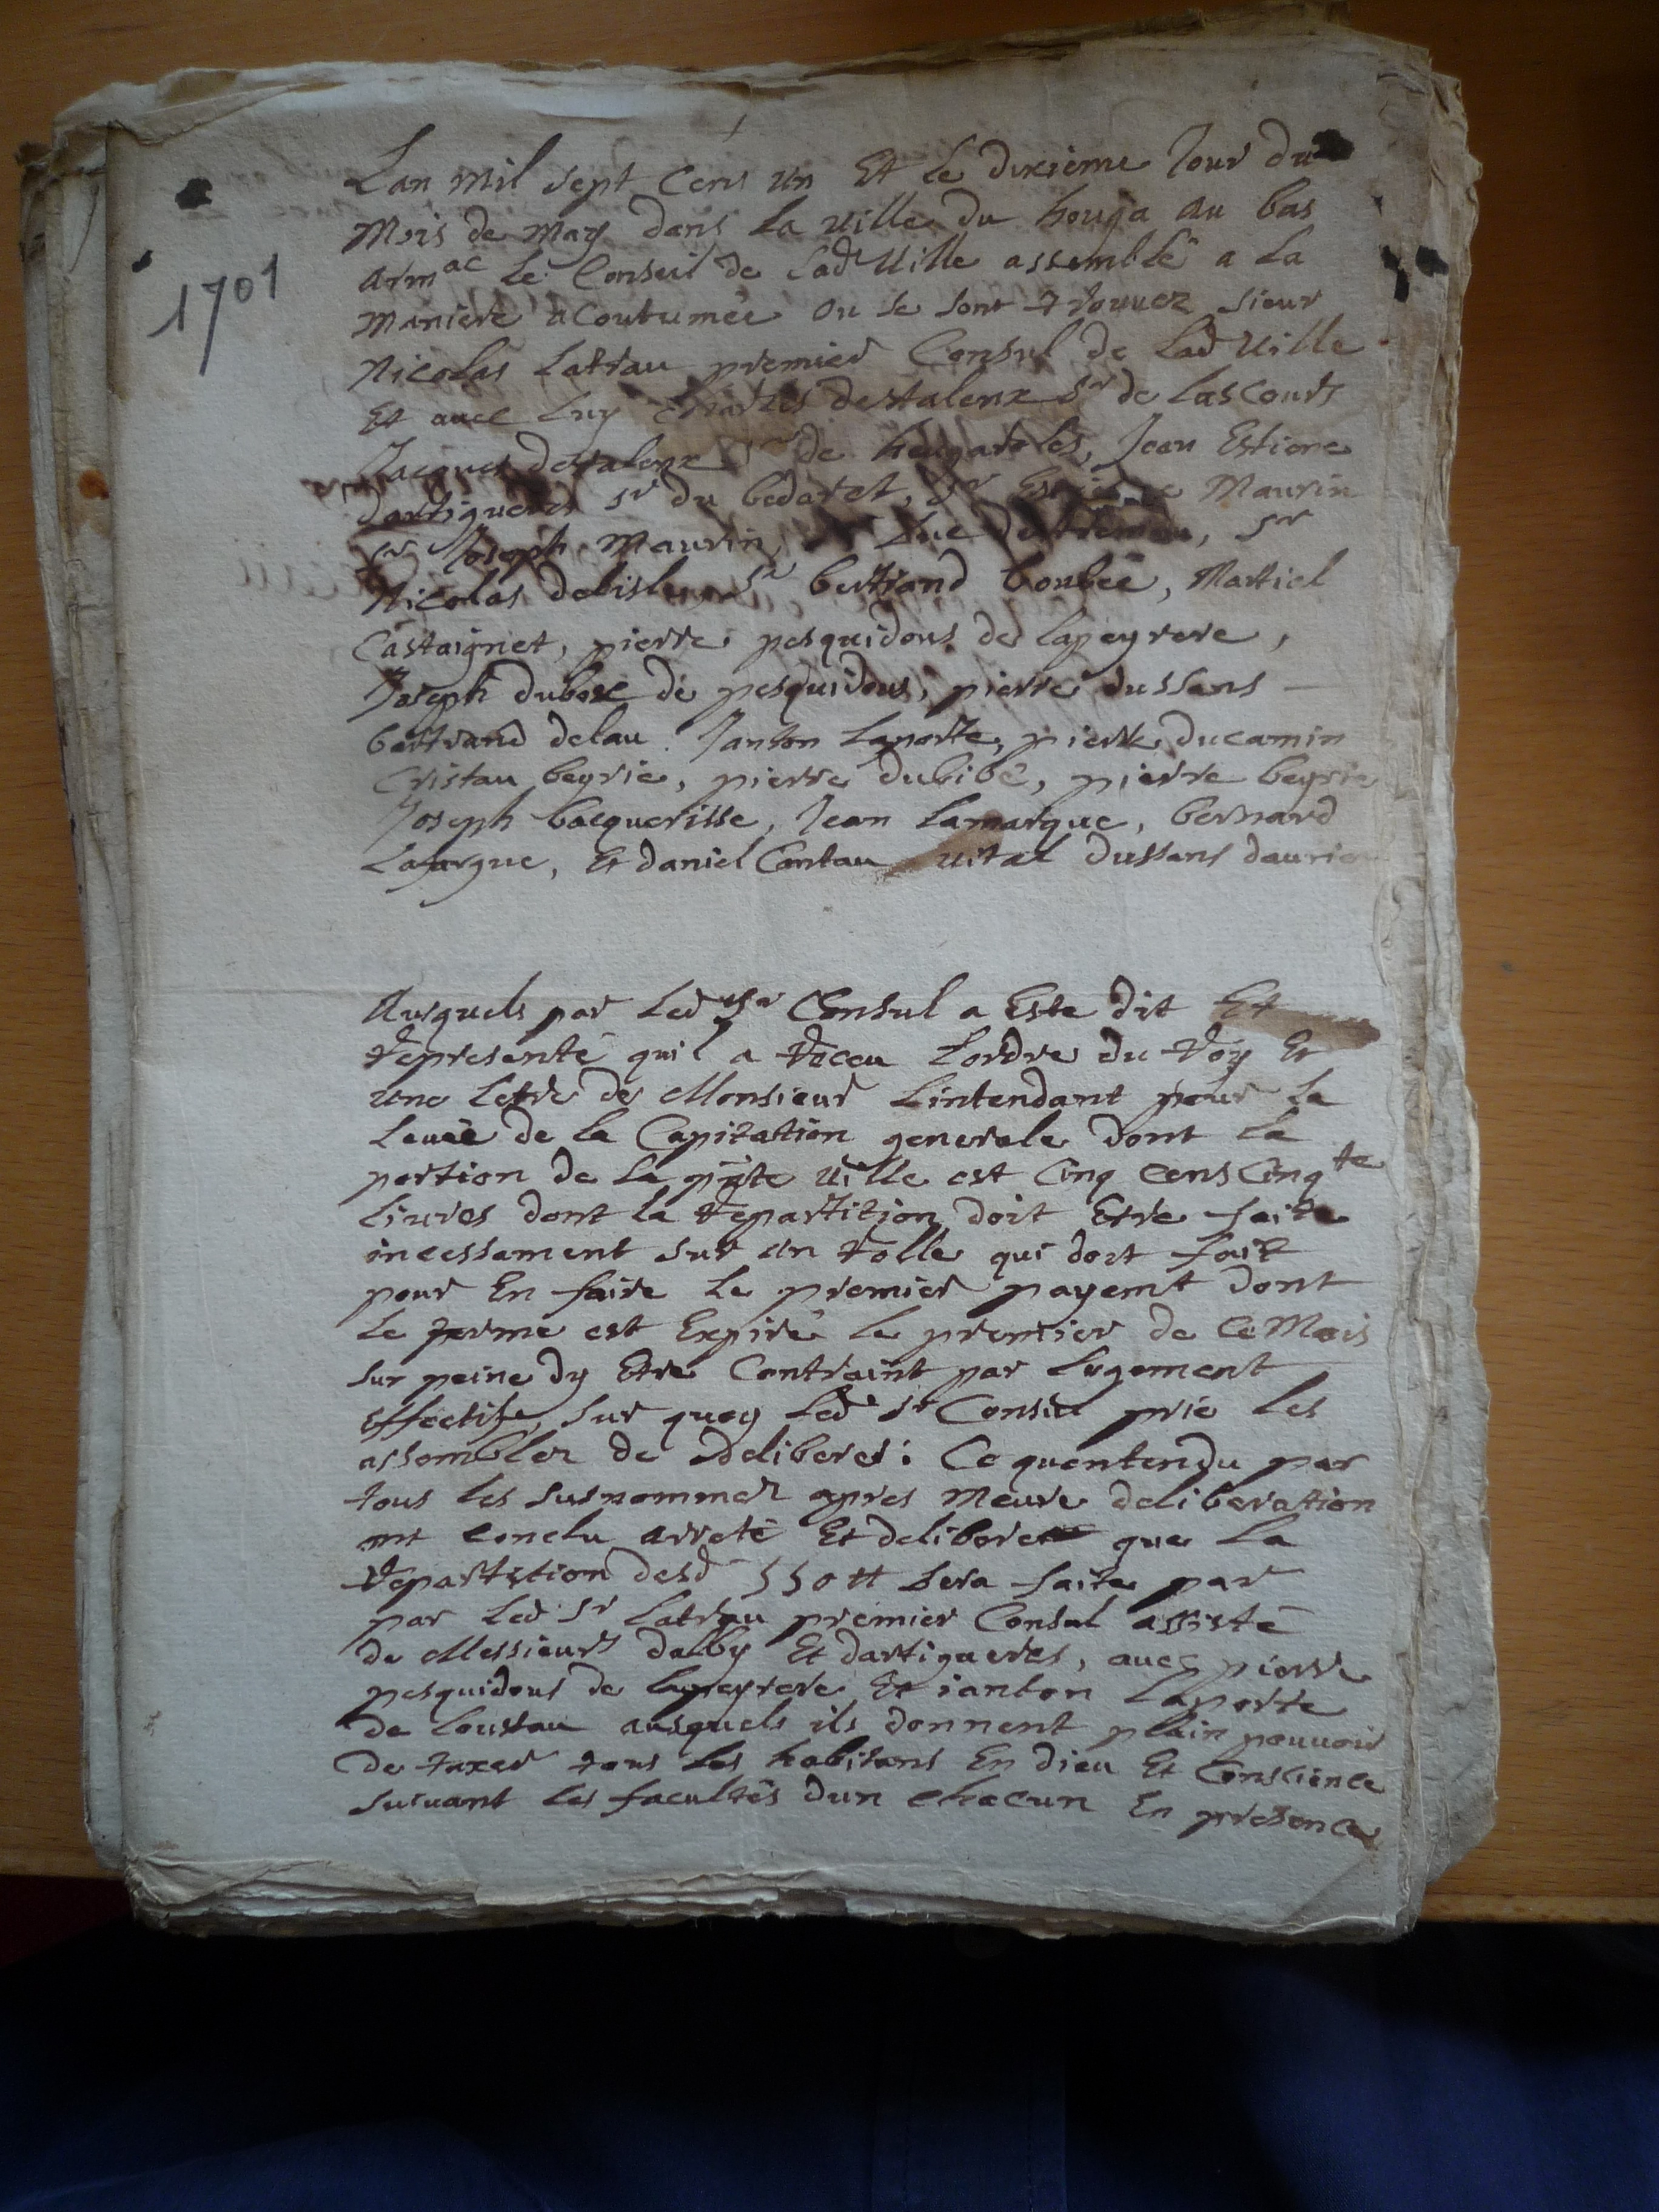 Lan mil sept cens un Et le dixieme Jour du
Mois de may dans la ville du houga au bas
armac le Conseil de lade Ville assemblé a la
maniere acoutumée ou se sont trouvez sieur
1701
Nicolas Latrau premier Consul de lad Ville
Et avec luy Charles destalenx Sr de Lascours
Jacques destalenx Sr de heugaroles, Jean Estiene
dartigueres Sr du bedaret, Sr Estienne Maurin
Sr Joseph Maurin, Luc, Sr
Nicolas delisle, Sr bertrand boubée, Martiel
Castaignet, pierre pesquidous de lapeyrere,
Joseph dubosc de pesquidous, pierre dussans
bertrand delau. Janton Laporte, pierre ducamin
Cristau beyrie, pierre dubibé, pierre beyrie
Joseph bacquerisse, Jean Lamarque, bernard
Lafargue, Et daniel Contau vital dussans
Ausquels par Led Sr Consul a Este dit Et
representé quil a receu Lordre du Roy Et
une Letre de Monsieur Lintendant pour la
Levée de la Capitation generale dont la
portion de la pnte ville est Cinq cens Cinqte
Livres dont la repartition doit Etre faite
incessament sur un rolle qui doit fait
pour En faire le premier payemt dont
le terme est Expiré le premier de ce Mois
sur peine dy Etre Contraint par Lugement
Effectif, sur quoy Led Sr Consul prie les
assemblez de deliberer: Ce quentendu par
tous les susnommez apres meure deliberation
ont conclu arreté Et deliberé que la
repartition desd 550 tt sera faite par
par Led Sr Latrau premier Consul assisté
de Messieurs dalby Et dartigueres, avec pierre
pesquidous de lapeyrere Et ianton Laporte
de Loustau ausquels ils donnent plain pouvoir
de taxer tous les habitans En dieu Et Conscience
suivant les facultés dun chacun En presence